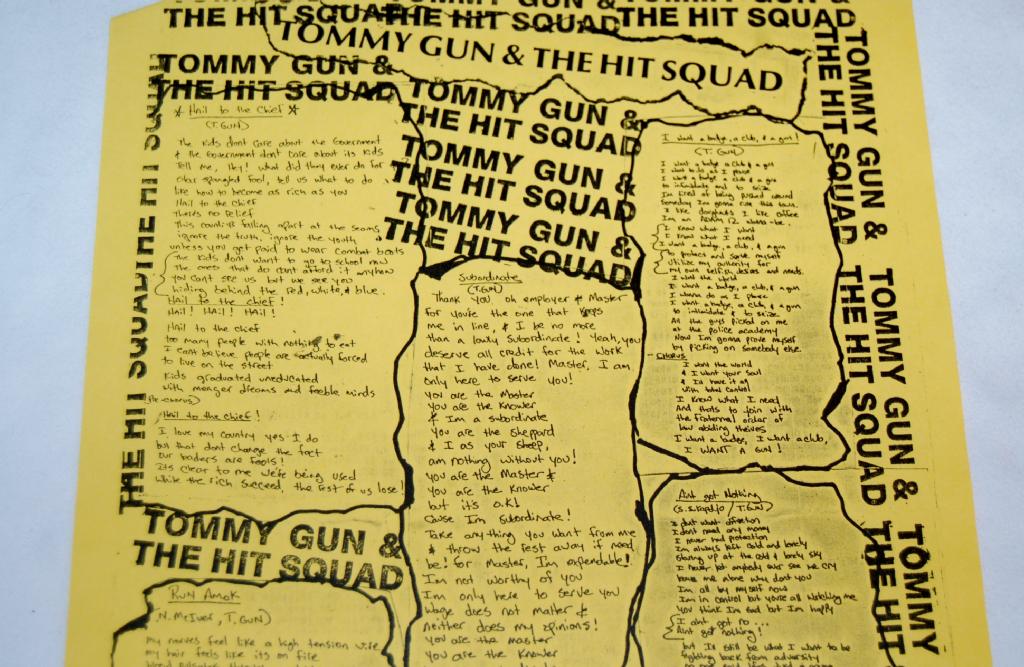 TOMMY GUN &
THE HIT SQUAD
THE HIT SQUAD
THE HIT SQUAD
TOMMY GUN & THE HIT SQUAD
TOMMY GUN &
THE HIT SQUAD
TOMMY GUN &
THE HIT SQUAD
TOMMY GUN &
THE HIT SQUAD
TOMMY GUN &
THE HIT SQUAD
Hail to the Chief
(T. GUN)
The kids dont care about the Government
& the Government dont care about its kids
Tell me, Hey! what did they ever do for
star spangled fool, tell us what to do
like how to become as rich as you
Hail to the chief
theres no relief
This country's falling apart at the seams
ignore the truth, ignore the youth
unless you get paid to wear combat boots
The kids dont want to go to school now
The ones that do cant afford it anyhow
you cant see us but we see you
hiding behind the red, white, & blue.
Hail to the chief!
HAIL! HAIL! HAIL!
Hail to the chief
too many people with nothing to eat
I cant believe people are actually forced
to live on the street
Kids graduated uneducated
with meager dreams and feeble minds
(Re-chorus)
Hail to the chief!
I love my country yes I do
but that dont change the fact
our leaders are fools!
Its clear to me we're being used
while the rich succeed, the rest of us lose!
TOMMY GUN &
THE HIT SQUAD
RUN AMOK
(N. McIver, T. GUN)
my nerves feel like a high tension wire
my hair feels like its on fire
Subordinate
(T. GUN)
Thank you, oh employer & Master
For you're the one that keeps
me in line, & I be no more
than a lowly subordinate! Yeah, you
deserve all credit for the work
that I have done! Master, I am
only here to serve you!
you are the Master
You are the Knower
& Im a subordinate
You are the sheppard
& I as your sheep,
am nothing without you!
you are the Master &
you are the knower
but it's O.K!
Cause Im subordinate!
Take anything you want from me
& throw the rest away if need
be! for Master, Im expendable!
Im not worthy of you
Im only here to serve you
wage does not matter &
neither does my opinions!
you are the master
you are the Knower
I want a badge, a club, & a gun!
(T. GUN)
I want a badge a club & a gun
I want to do as I please
I want a badge a club & a gun
to intimidate and to seize
Im tired of being pushed around
Someday Im gonna run this town
I like doughnuts I like coffee
Im an ADAM 12 wanna-be.
I know what I want
I know what I need
I want a badge, a club, & a gun
to protect and serve myself
Utilize my authority for
my own selfish desires and needs.
I want the world
I want a badge, a club, & a gun
I wanna do as I please
I want a badge, a club, & a gun
to intimidate & to seize
All the guys picked on me
at the police academy
Now Im gonna prove myself
by picking on somebody else.
- CHORUS
I want the world
& I want your soul
& Ill have it all
with total control
I know what I need
And thats to join with
the fraternal order of
law abiding theives
I want a badge, I want a club,
I WANT A GUN!
Aint got Nothing
T. GUN)
direction
I dont need any money
I never had protection
Im always left cold and lonely
staring up at the cold & lonely sky
I never let anybody ever see me cry
leave me alone why dont you
Im all by myself now
Im in control but youre all watching me
You think Im sad but Im happy
I aint got no...
Aint got nothing!
but Ill still be what I want to be
fighting back from adversity
THE HIT SQUAD
THE HIT SQUAD
TOMMY GUN &
THE HIT SQUAD
TOMMY GUN &
THE HIT SQUAD
TOMMY
THE HIT